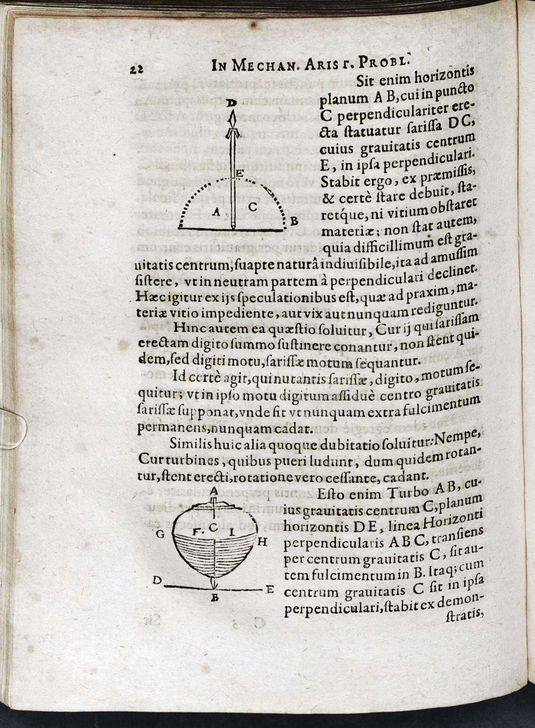 22
IN MECHAN. ARIST. PROBL.
Sit enim horizontis
planum A B, cui in puncto
C perpendiculariter ere-
cta statuatur sarissa D C,
cuius grauitatis centrum
E, in ipsa perpendiculari.
Stabit ergo, ex præmissis,
& certè stare debuit, sta-
retq́ue, ni vitium obstaret
materiæ; non stat autem,
quia difficillimum est gra-
uitatis centrum, suapte naturâ indiuisibile, ita ad amussim
sistere, vt in neutram partem à perpendiculari declinet.
Hæc igitur ex ijs speculationibus est, quæ ad praxim, ma-
teriæ vitio impediente, aut vix aut nunquam rediguntur.
Hinc autem ea quæstio soluitur, Cur ij qui sarissam
erectam digito summo sustinere conantur, non stent qui-
dem, sed digiti motu, sarissæ motum sequantur.
Id certè agit, qui nutantis sarissæ, digito, motum se-
quitur; vt in ipso motu digitum assiduè centro grauitatis
sarissæ supponat, vnde fit vt nunquam extra fulcimentum
permanens, nunquam cadat.
Similis huic alia quoque dubitatio soluitur: Nempe,
Cur turbines, quibus pueri ludunt, dum quidem rotan-
tur, stent erecti, rotatione vero cessante, cadant.
Esto enim Turbo A B, cu-
ius grauitatis centrum C, planum
horizontis D E, linea Horizonti
perpendicularis A B C, transiens
per centrum grauitatis C, sit au-
tem fulcimentum in B. Itaq; cum
centrum grauitatis C sit in ipsa
perpendiculari, stabit ex demon-
stratis,
D
E
A
C
B
A
G
F
C
I
H
D
B
E